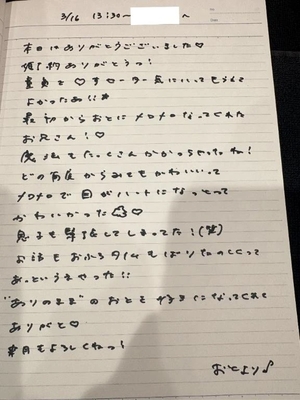 3/16 13:30〜 〜
本日はありがとうございました♡
予約ありがとうっ!
豊員と♡すローター気にいってもらえて
よかったぁ!!
最初からおとにメロメロなってくれた
お兄さん!♡
魔法もたっくさんかかっちゃったね!
どの角度からみてもかわいいって
メロメロで目がハートになっとって
かわいかった♡
息子も緊張してしまってた!(笑)
お話もおふろタイムもぱりたのしくって
あっというまやった!!
"ありのまま"のおとを好きになってくれて
ありがと♡
来月もよろしくねっ!
おとより♪